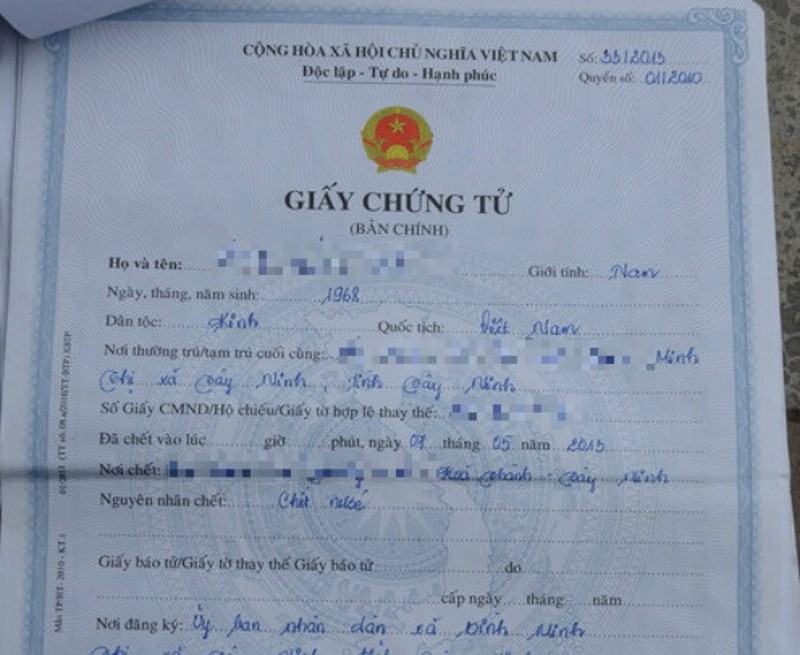 CỘNG HÒA XÃ HỘI CHỦ NGHĨA VIỆT NAM
Độc lập - Tự do - Hạnh phúc
Số: 33/2013
Quyển số: 01/2010
GIẤY CHỨNG TỬ
(BẢN CHÍNH)
Họ và tên: Giới tính: Nam
Ngày, tháng, năm sinh: 1968
Dân tộc: Kinh Quốc tịch: Việt Nam
Nơi thường trú/tạm trú cuối cùng: Minh
Thị xã Tây Ninh, tỉnh Tây Ninh
Số Giấy CMND/Hộ chiếu/Giấy tờ hợp lệ thay thế:
Đã chết vào lúc giờ phút, ngày 07 tháng 05 năm 2013
Nơi chết: Hoà Thành - Tây Ninh
Nguyên nhân chết: Chết nước
Giấy báo tử/Giấy tờ thay thế Giấy báo tử do
cấp ngày tháng năm
Nơi đăng ký: Ủy ban nhân dân xã Bình Minh
Mẫu TP/HT- 2010 - KT.1